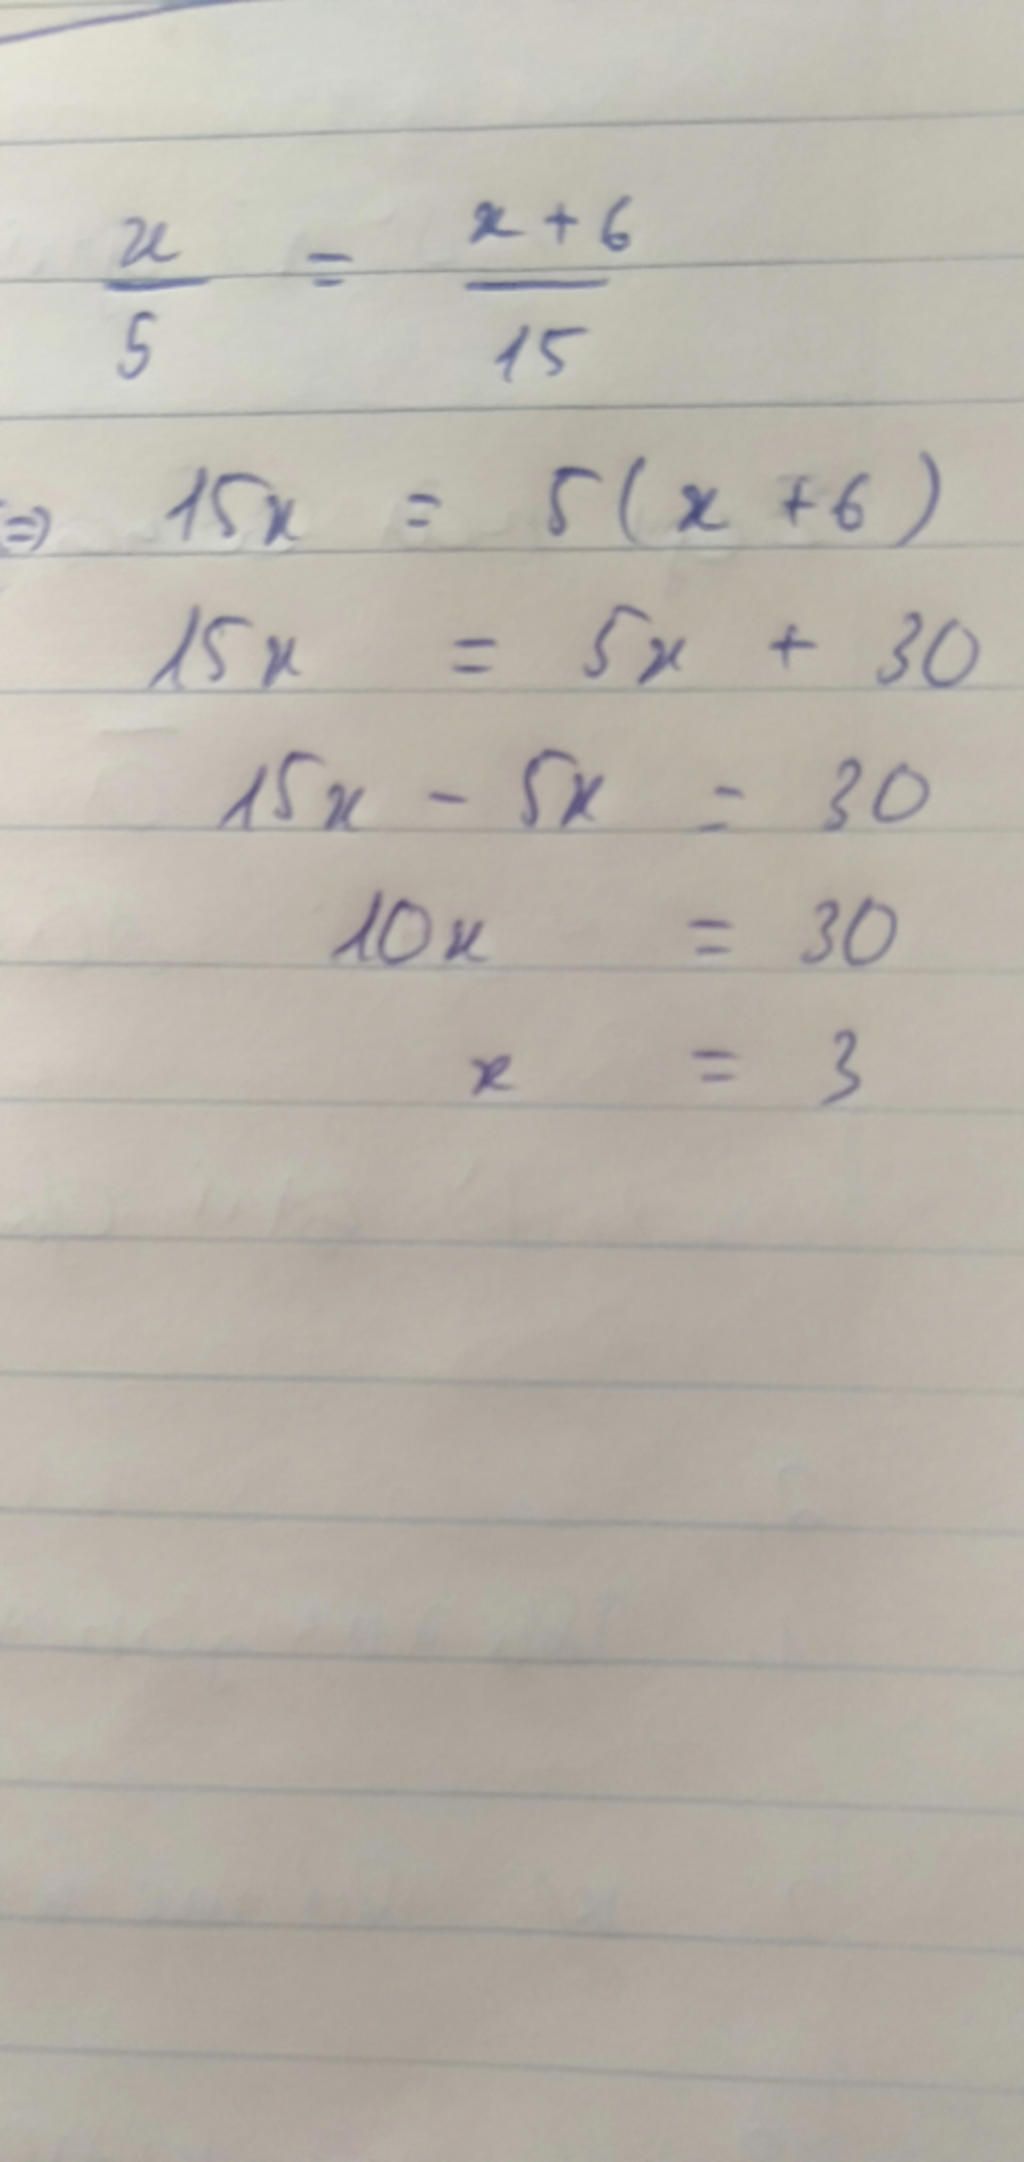 x/5 = x+6/15
=> 15x = 5(x+6)
15x = 5x + 30
15x - 5x = 30
10x = 30
x = 3